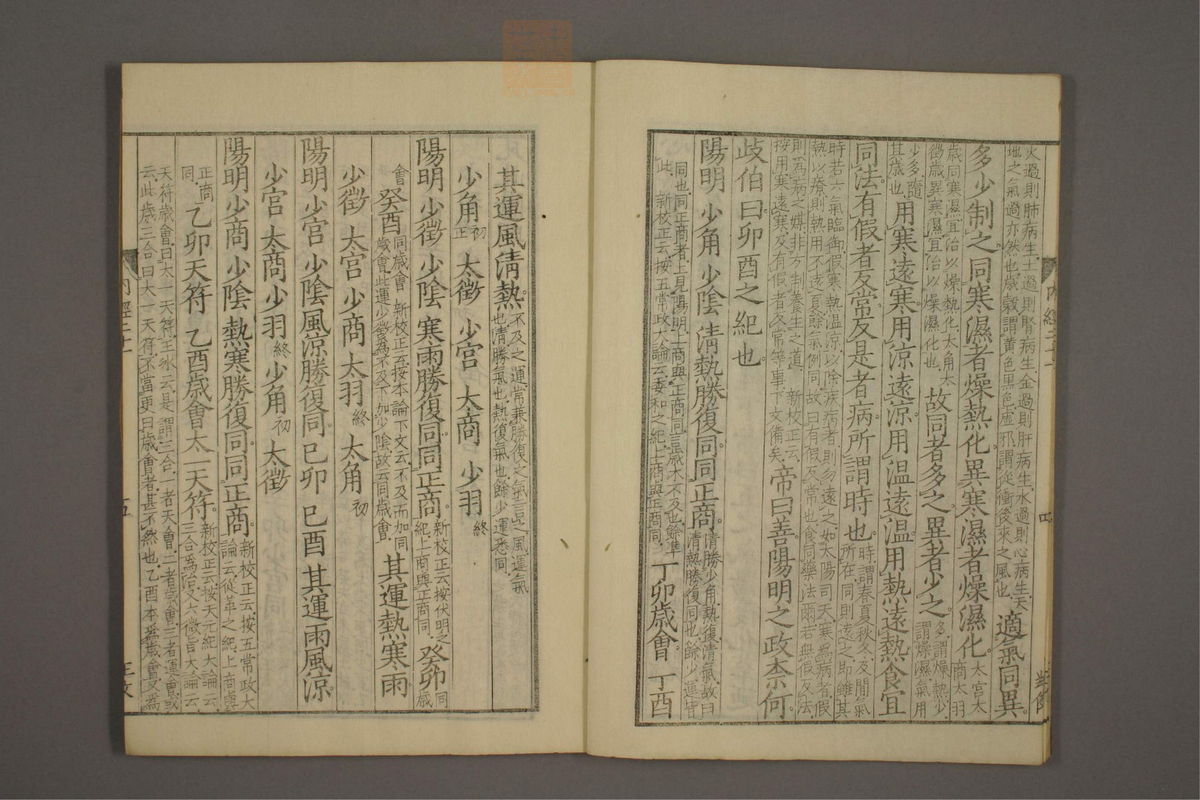 火過則肺病生土過則腎病生金過則肝病生水過則心病生天
地之氣過亦然也歲穀謂黄色黑色虛邪謂從衝後來之風也
適氣同異
多少制之同寒濕者燥熱化異寒濕者燥濕化
太宫太
商太羽
歲同寒濕宜治以燥熱化太角太
徵歲異寒濕宜治以燥濕化也
故同者多之異者少之
多謂燥熱少
謂燥濕氣用
少多隨
其歲也
用寒遠寒用涼遠涼用温遠温用熱遠熱食宜
同法有假者反常反是者病所謂時也
時謂春夏秋冬及間氣
所在同則遠之即雖其
時若六氣臨御假寒熱温涼以除疾病者則勿遠之如太陽司天寒為病者假
熱以療則熱用不遠夏餘氣例同故曰有假反常也食同藥法爾若無假反法
則為病之媒非方制養生之道 新校正云
按用寒遠寒及有假者反常等事下文備矣
帝曰善陽明之政柰何
歧伯曰卯酉之紀也
陽明 少角 少陰 清熱勝復同同正商
清勝少角熱復清氣故曰
清熱勝復同也餘少運皆
同也同正商者上見陽明上商與正商同言歲木不及也餘準
此 新校正云按五常政大論云委和之紀上商與正商同
丁卯歲會 丁酉
其運風清熱
不及之運常兼勝復之氣言之風運氣
也清勝氣也熱復氣也餘少運悉同
少角初正 太徵 少宫 太商 少羽終
陽明 少徵 少陰 寒雨勝復同同正商
新校正云按伏明之
紀上商與正商同
癸卯同歲
會 癸酉
同歲會 新校正云按本論下文云不及而加同
歲會此運少徵為不及下加少陰故云同歲會
其運熱寒雨
少徵 太宫 少商 太羽終 太角初
陽明 少宫 少陰 風涼勝復同 己卯 己酉 其運雨風涼
少宫 太商 少羽終 少角初 太徵
陽明 少商 少陰 熱寒勝復同同正商
新校正云按五常政大
論云從革之紀上商與
正商
同
乙卯天符 乙酉歲會太一天符
新校正云按天元紀大論云
三合為治又六微旨大論云
天符歲會曰太一天符王冰云是謂三合一者天會二者歲會三者運會或
云此歲三合曰太一天符不當更曰歲會者甚不然也乙酉本為歲會又為